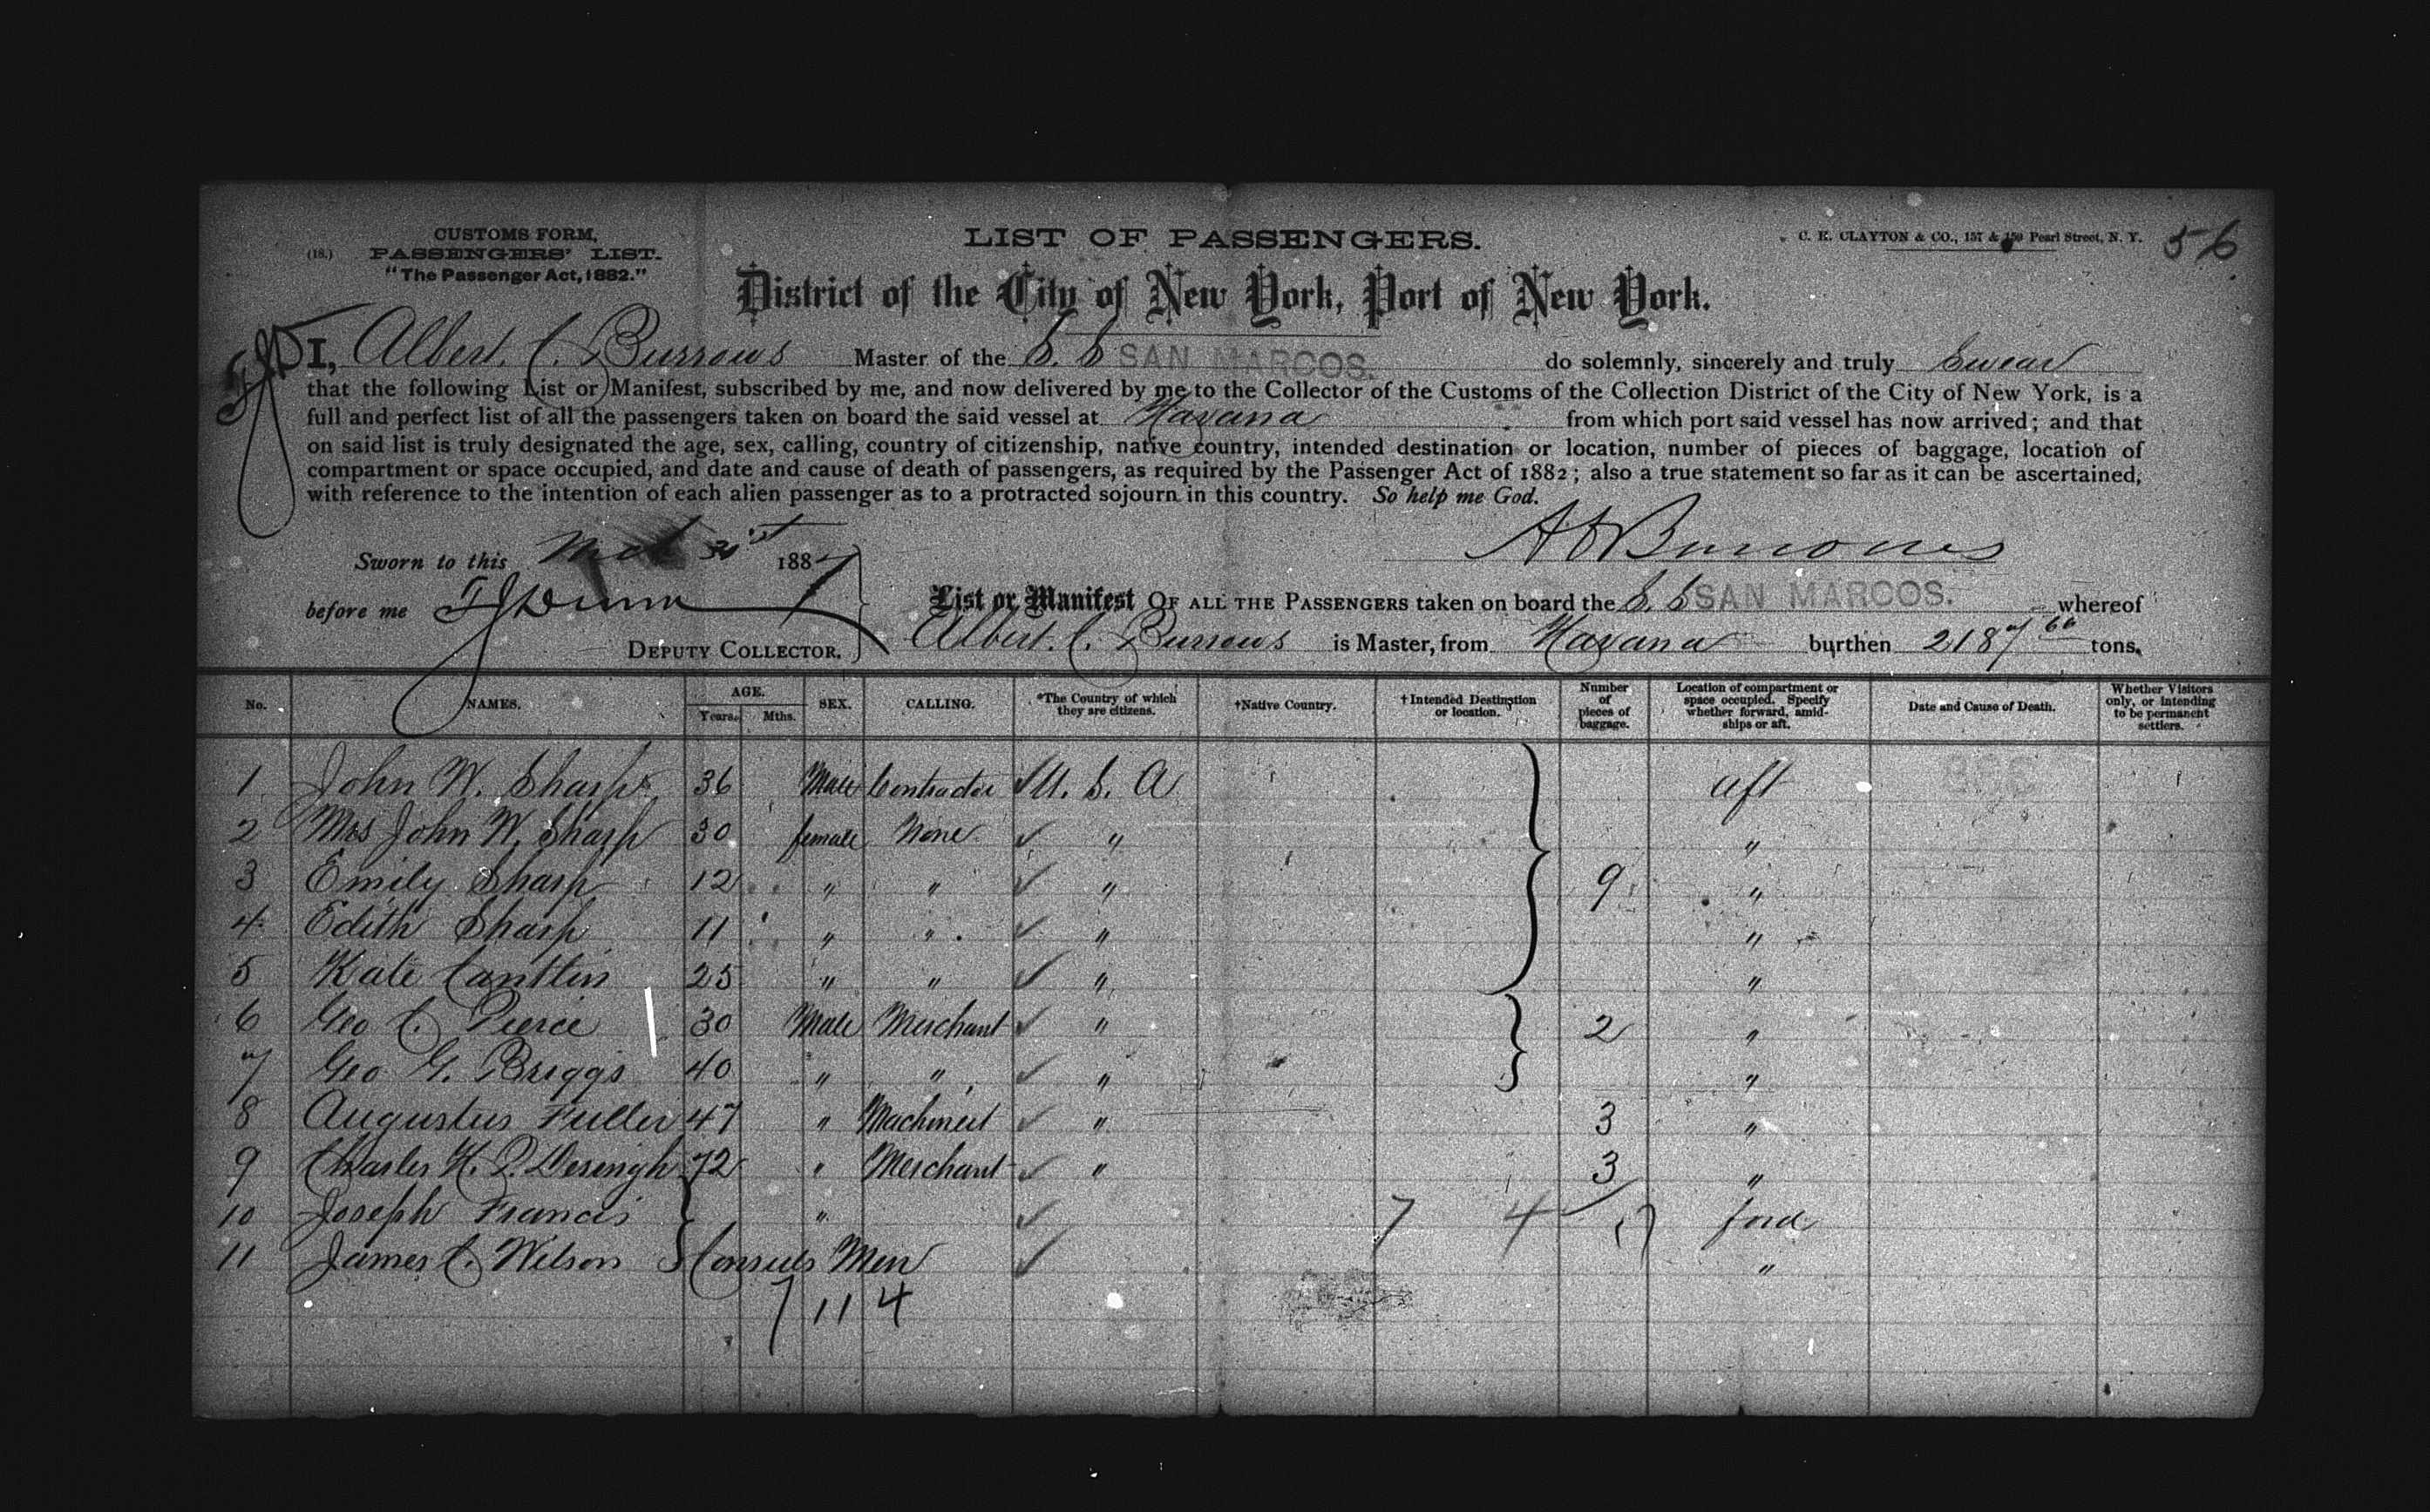 CUSTOMS FORM,
(18.) PASSENGERS' LIST.
"The Passenger Act, 1882."
LIST OF PASSENGERS.
C. E. CLAYTON & CO., 157 & 159 Pearl Street, N. Y.
56
District of the City of New York, Port of New York.
I, Albert. C. Burrows Master of the S. S SAN MARCOS. do solemnly, sincerely and truly Swear
that the following List or Manifest, subscribed by me, and now delivered by me to the Collector of the Customs of the Collection District of the City of New York, is a
full and perfect list of all the passengers taken on board the said vessel at Havana from which port said vessel has now arrived; and that
on said list is truly designated the age, sex, calling, country of citizenship, native country, intended destination or location, number of pieces of baggage, location of
compartment or space occupied, and date and cause of death of passengers, as required by the Passenger Act of 1882; also a true statement so far as it can be ascertained,
with reference to the intention of each alien passenger as to a protracted sojourn in this country. So help me God.
A C Burrows
Sworn to this Mch 31st 1887
before me T J Dunn
DEPUTY COLLECTOR.
List or Manifest OF ALL THE PASSENGERS taken on board the S. S SAN MARCOS. whereof
Albert. C. Burrows is Master, from Havana burthen 2187 66 tons.
No. NAMES. AGE. Years. Mths. SEX. CALLING. *The Country of which they are citizens. †Native Country. †Intended Destination or location. Number of pieces of baggage. Location of compartment or space occupied. Specify whether forward, amidships or aft. Date and Cause of Death. Whether Visitors only, or intending to be permanent settlers.
1 John W. Sharp 36 Male Contractor U. S. A aft
2 Mrs John W. Sharp 30 female None " "
3 Emily Sharp 12 " " " 9 "
4 Edith Sharp 11 " " " "
5 Kate Cantlin 25 " " " "
6 Geo C. Pierce 30 Male Merchant " 2 "
7 Geo G. Briggs 40 " " " "
8 Augustus Fuller 47 " Machinist " 3 "
9 Charles H. P. 72 " Merchant " 3 "
10 Joseph Francis " 7 4 17 ford
11 James C. Wilson Consuls Men "
7 11 4